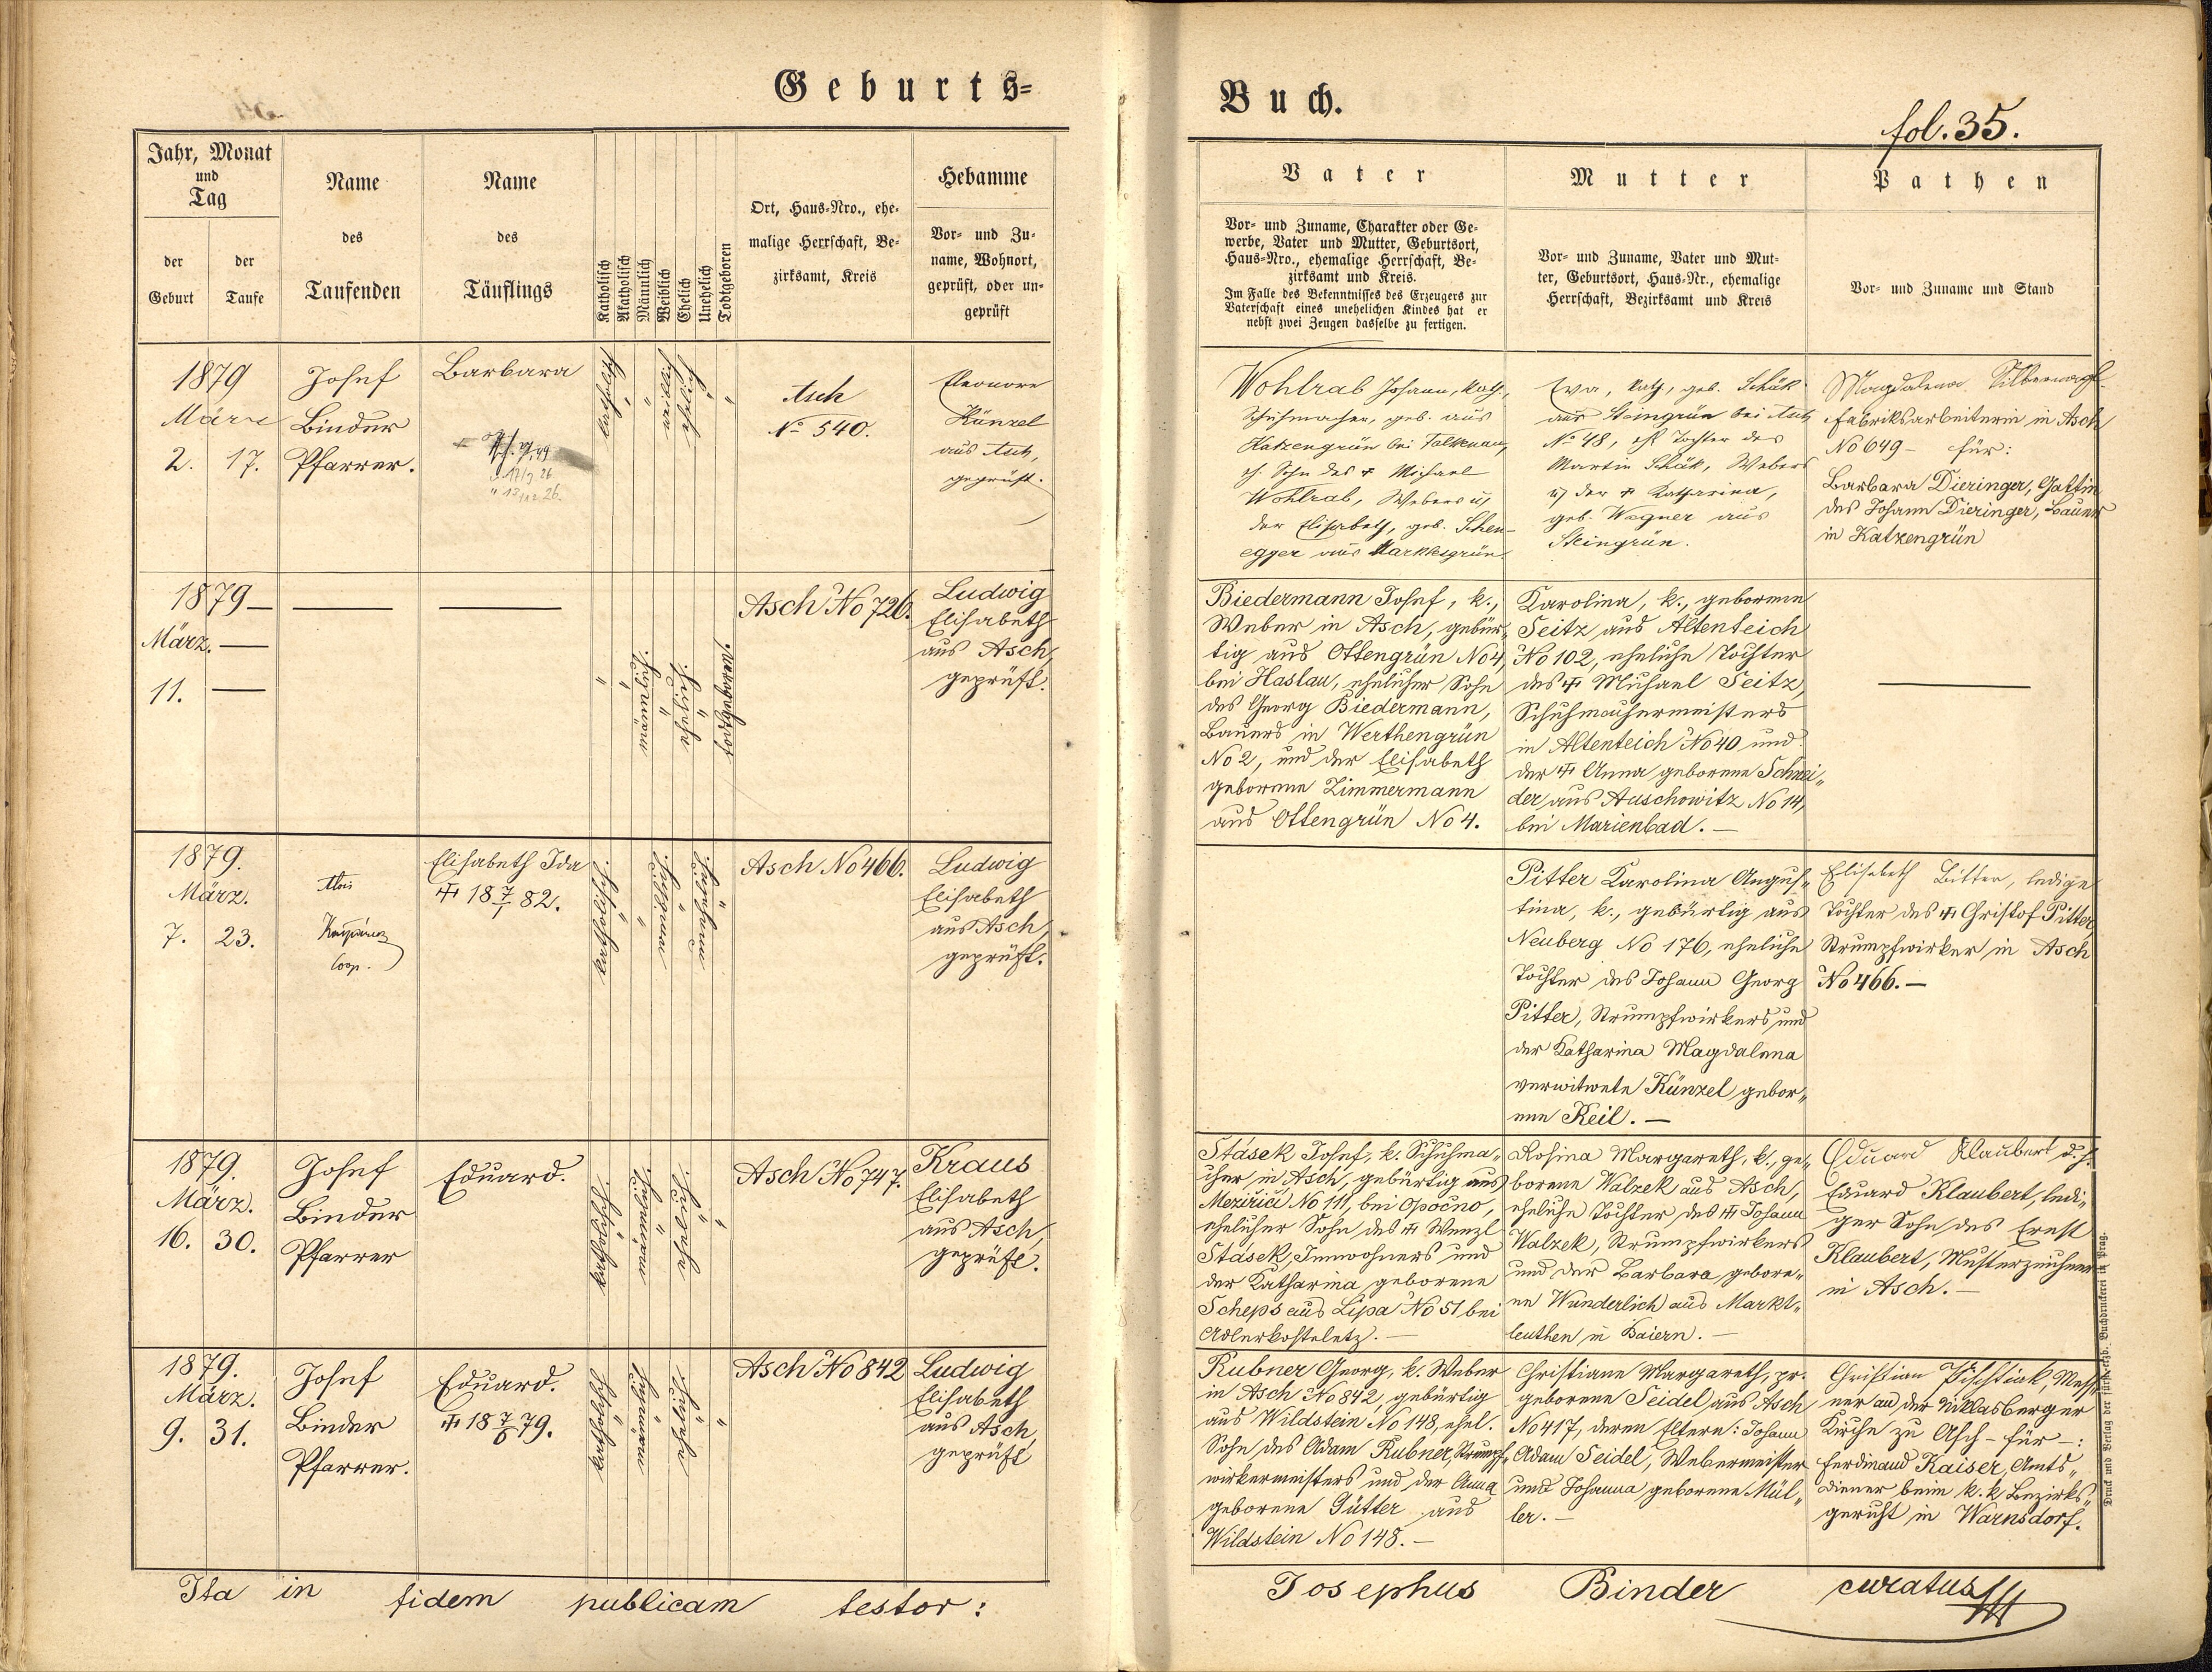 Geburts=
Buch.
fol. 35.
Jahr, Monat
und
Tag
der
Geburt
der
Taufe
Name
des
Taufenden
Name
des
Täuflings
Katholisch
Akatholisch
Männlich
Weiblich
Ehelich
Unehelich
Todtgeboren
Ort, Haus-Nro., ehe-
malige Herrschaft, Be-
zirksamt, Kreis
Hebamme
Vor- und Zu-
name, Wohnort,
geprüft, oder un-
geprüft
Vater
Vor- und Zuname, Charakter oder Ge-
werbe, Vater und Mutter, Geburtsort,
Haus-Nro., ehemalige Herrschaft, Be-
zirksamt und Kreis.
Im Falle des Bekenntnisses des Erzeugers zur
Vaterschaft eines unehelichen Kindes hat er
nebst zwei Zeugen dasselbe zu fertigen.
Mutter
Vor- und Zuname, Vater und Mut-
ter, Geburtsort, Haus-Nr., ehemalige
Herrschaft, Bezirksamt und Kreis
Pathen
Vor- und Zuname und Stand
1879
März
2. 17.
Josef
Binder
Pfarrer.
Barbara
Asch
No 540.
Eleonore
Künzel
aus Asch,
geprüft.
Wohlrab Johann, kath.,
Schuhmacher, geb. aus
Katzengrün bei Falkenau,
eh. Sohn des + Michael
Wohlrab, Webers u
der Elisabeth, geb. Schen-
egger aus Markkesgrün.
Eva, kath, geb. Schük
aus Steingrün bei Asch
No 48, ehl Tochter des
Martin Schük, Webers
u der + Katharina,
geb. Wagner aus
Steingrün.
Magdalena Silbernagl
Fabriksarbeiterin in Asch
No 649 – für:
Barbara Dieringer, Gattin
des Johann Dieringer, Bauers
in Katzengrün
1879 –
März. –
11. –
Asch No 726.
Ludwig
Elisabeth
aus Asch,
geprüft.
männlich
eheliche
todtgeboren
Biedermann Josef, k.,
Weber in Asch, gebür„
tig aus Ottengrün No 4,
bei Haslau, ehelicher Sohn
des Georg Biedermann,
Bauers in Werthengrün
No 2, und der Elisabeth
geborene Zimmermann
aus Ottengrün No 4.
Karolina, k., geborene
Seitz aus Altenteich
No 102, eheliche Tochter
des + Michael Seitz,
Schuhmachermeisters
in Altenteich No 40 und
der + Anna geborene Schnei„
der aus Auschowitz No 14,
bei Marienbad. –
1879.
März.
7. 23.
Alois
Coop.
Elisabeth Ida
+ 18 7/1 82.
Asch No 466.
Ludwig
Elisabeth
aus Asch,
geprüft.
Pitter Karolina Augus„
tina, k., gebürtig aus
Neuberg No 176, eheliche
Tochter des Johann Georg
Pitter, Strumpfwirkers und
der Katharina Magdalena
verwitwete Künzel gebor„
ene Keil. –
Elisabeth Bitter, ledige
Tochter des + Christof Pitter,
Strumpfwirker in Asch
No 466. –
1879.
März.
16. 30.
Josef
Binder
Pfarrer
Eduard.
Asch No 747.
Kraus
Elisabeth
aus Asch,
geprüft.
Stásek Josef, k. Schuhma„
cher in Asch, gebürtig aus
Meziřiči No 111, bei Opočno,
ehelicher Sohn des + Wenzl
Stásek, Innwohners und
der Katharina geborene
Scheps aus Lipa No 51 bei
Adlerkosteletz. –
Rosina Margareth, k., ge„
borene Walzek aus Asch,
eheliche Tochter des + Johann
Walzek, Strumpfwirkers
und der Barbara, gebore„
ne Wunderlich aus Markt„
leuthen in Baiern. –
Eduard Klaubert d. h.
Eduard Klaubert, ledi„
ger Sohn des Ernst
Klaubert, Musterzeichner
in Asch. –
1879.
März.
9. 31.
Josef
Binder
Pfarrer.
Eduard.
+ 18 7/6 79.
Asch No 842
Ludwig
Elisabeth
aus Asch,
geprüft
Rubner Georg, k. Weber
in Asch No 842, gebürtig
aus Wildstein No 148, ehel.
Sohn des Adam Rubner, Strumpf„
wirkermeisters und der Anna
geborene Gütter aus
Wildstein No 148. –
Christiane Margareth, pr.
geborene Seidel aus Asch
No 417, deren Eltern: Johann
Adam Seidel, Webermeister
und Johanna geborene Mül„
ler. –
Christian Pischtiak, Mess„
ner an der Niklasberger
Kirche zu Asch – für –:
Ferdinand Kaiser, Amts„
diener beim k. k Bezirks„
gericht in Warnsdorf.
Ita in fidem publicam testor:
Josephus Binder curatus